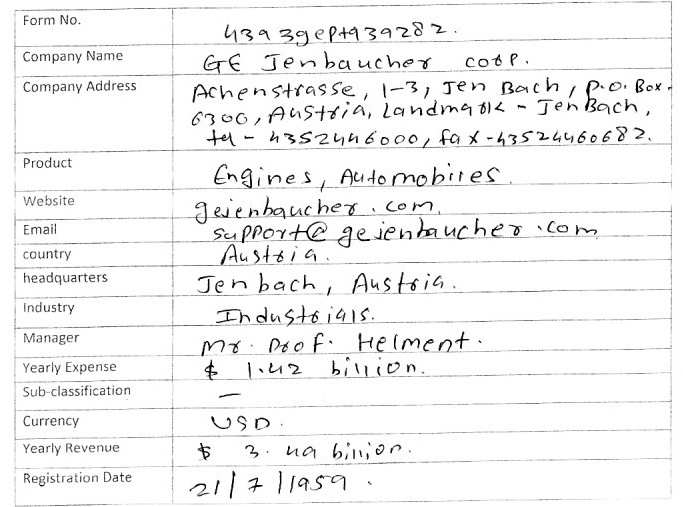 Form No. 4393gept939282.
Company Name GE Jenbaucher corp.
Company Address Achenstrasse, 1-3, Jen Bach, P.O. Box-
6300, Austria, Landmark - JenBach,
tel - 4352446000, fax - 43524460682.
Product Engines, Automobiles.
Website gejenbaucher.com.
Email support@gejenbaucher.com
country Austria.
headquarters Jenbach, Austria.
Industry Industrials.
Manager Mr. Prof. Helment.
Yearly Expense $ 1.42 billion.
Sub-classification —
Currency USD.
Yearly Revenue $ 3.49 billion.
Registration Date 21/7/1959.